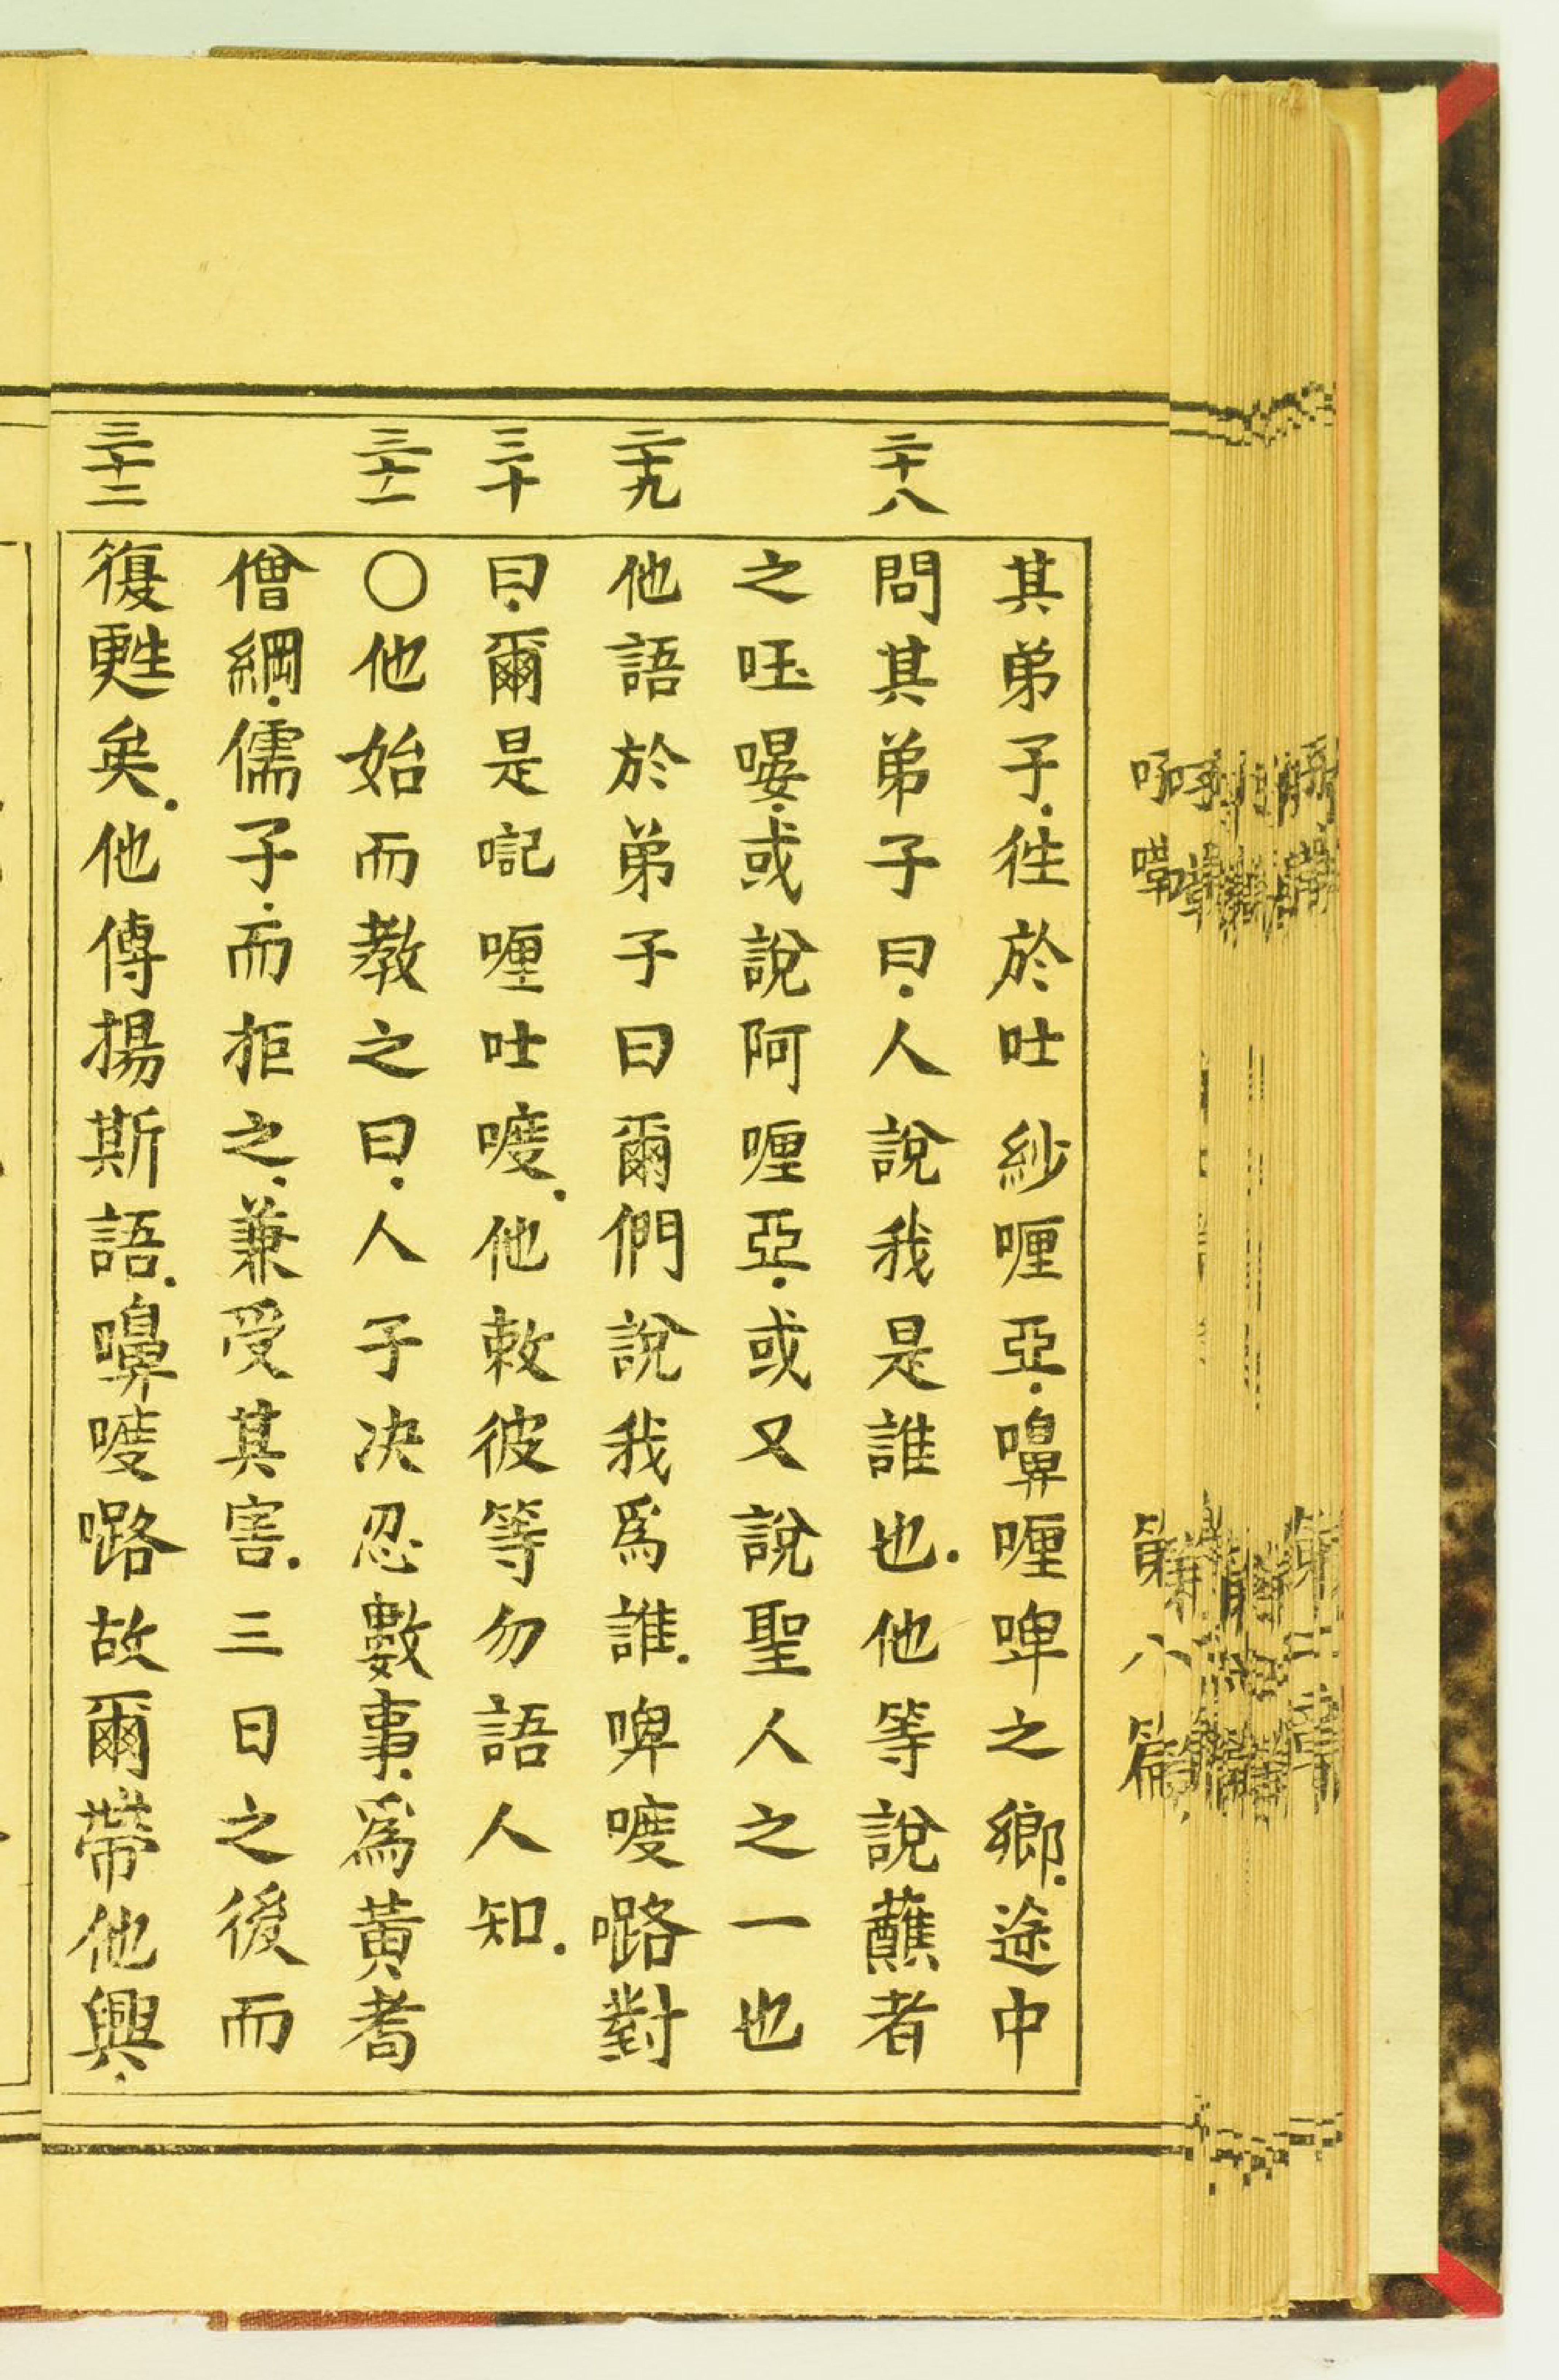 其弟子.往於吐紗喱亞.嚊喱啤之鄉.途中
二十八
問其弟子曰.人說我是誰也.他等說蘸者
之𠰃㬫.或說阿喱亞.或又說聖人之一也
二十九
他語於弟子曰爾們說我爲誰.啤喥嚕對
三十
曰.爾是喱吐喥.他敕彼等勿語人知.
三十一
〇他始而教之曰.人子决忍數事.爲黃耈
僧綱.儒子.而拒之.兼受其害.三日之後而
三十二
復甦矣.他傳揚斯語.嚊喥故爾帶他興.
第八篇